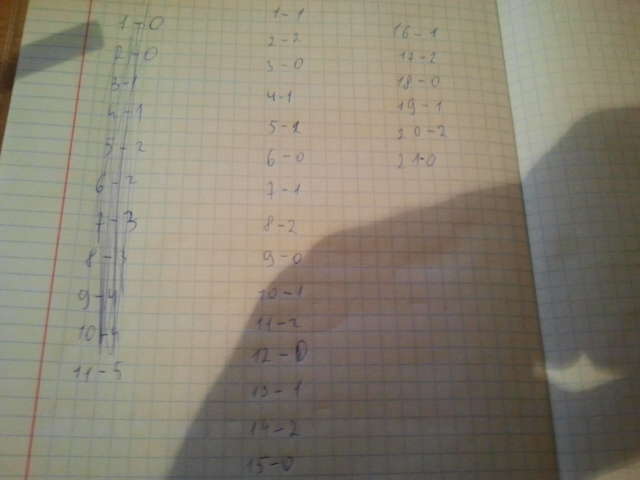 1-0
2-0
3-1
4-1
5-2
6-2
7-3
8-3
9-4
10-4
11-5
1-1
2-2
3-0
4-1
5-2
6-0
7-1
8-2
9-0
10-1
11-2
12-0
13-1
14-2
15-0
16-1
17-2
18-0
19-1
20-2
21-0